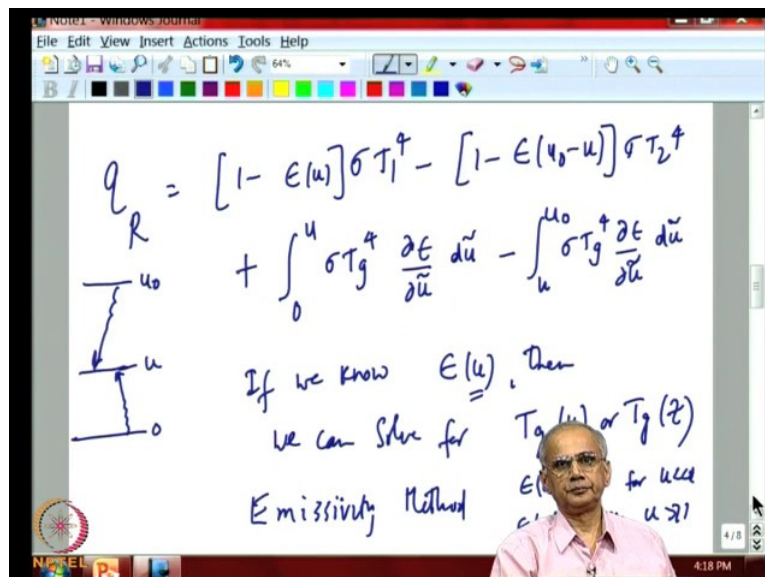 Note1 - Windows Journal
File Edit View Insert Actions Tools Help
64%
B I
q_R = [1 - ϵ(u)]σT₁⁴ - [1 - ϵ(u₀-u)]σT₂⁴
+ ∫₀ᵘ σTg⁴ ∂ϵ/∂ũ dũ - ∫ᵤᵘ⁰ σTg⁴ ∂ϵ/∂ũ dũ
u₀
u
0
If we know ϵ(u), then
we can solve for Tg(u) or Tg(z)
Emissivity Method
for u<<1
u>>1
4/8
NPTEL
4:18 PM